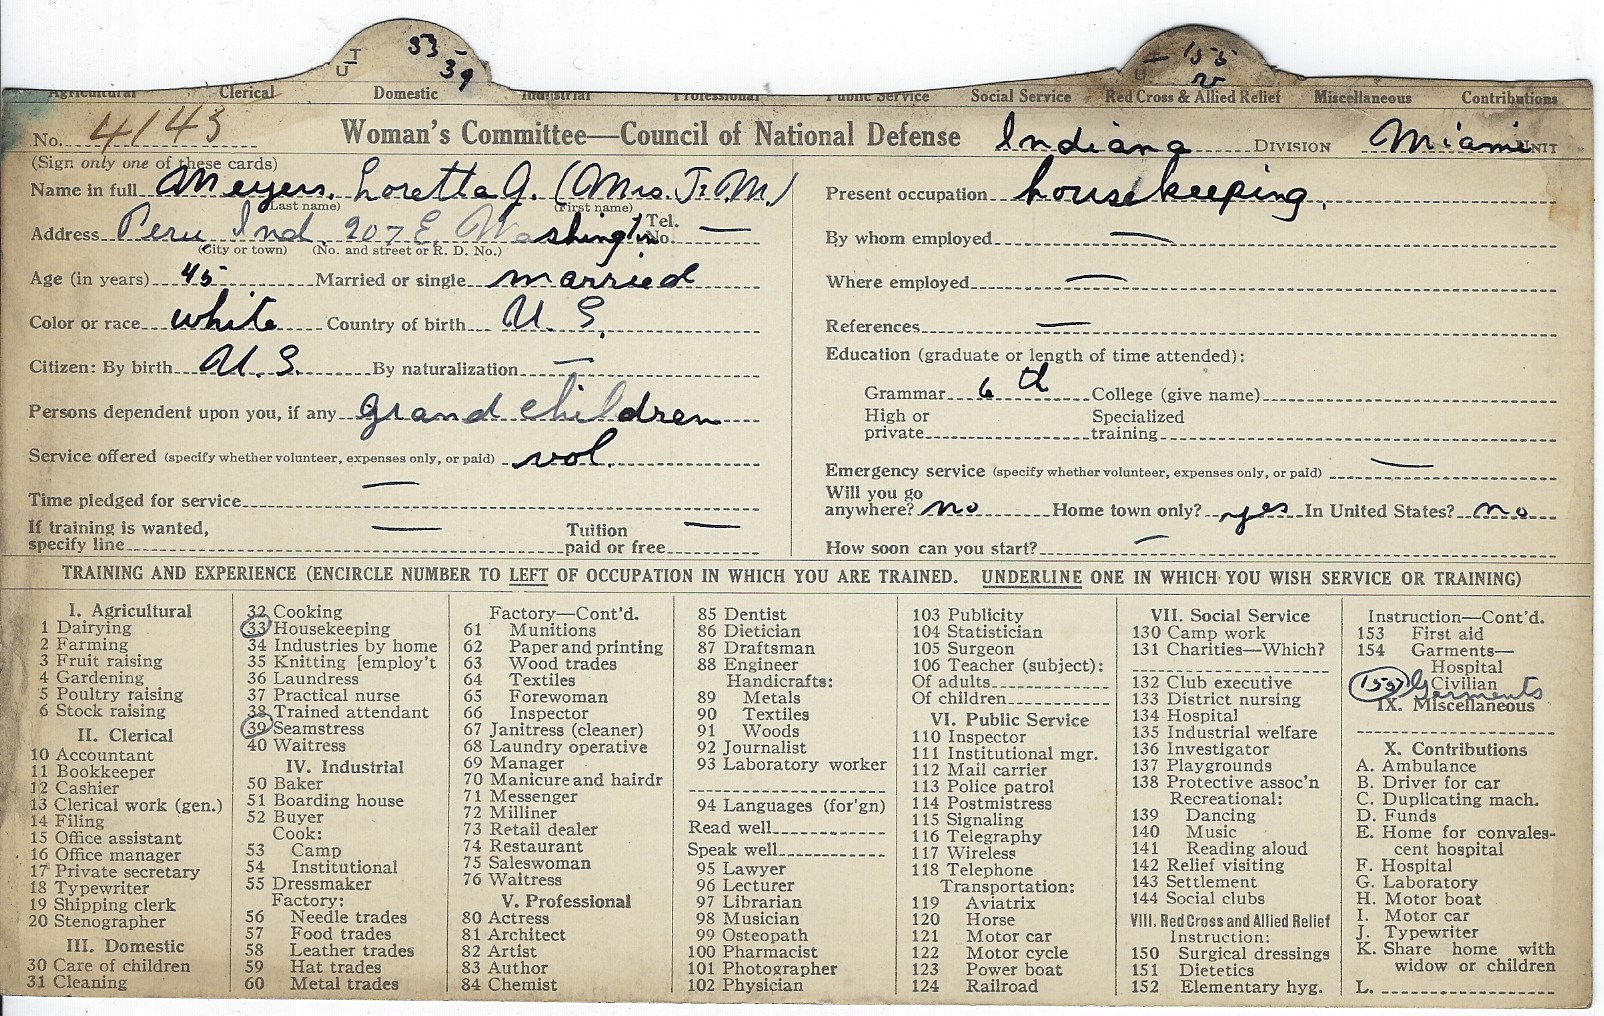 T
U
33 -
39
U
- 155
v
Agricultural Clerical Domestic Industrial Professional Public Service Social Service Red Cross & Allied Relief Miscellaneous Contributions
No. 4143 Woman's Committee—Council of National Defense Indiana DIVISION Miami UNIT
(Sign only one of these cards)
Name in full Meyers, Loretta J. (Mrs. J. M.)
(Last name) (First name)
Address Peru Ind. 207 E. Washington Tel. No. —
(City or town) (No. and street or R. D. No.)
Age (in years) 45 Married or single married
Color or race white Country of birth U. S.
Citizen: By birth U. S. By naturalization —
Persons dependent upon you, if any grand children
Service offered (specify whether volunteer, expenses only, or paid) vol.
Time pledged for service —
If training is wanted, specify line — Tuition paid or free —
Present occupation housekeeping.
By whom employed —
Where employed —
References —
Education (graduate or length of time attended):
Grammar 6 th College (give name)
High or private Specialized training
Emergency service (specify whether volunteer, expenses only, or paid) —
Will you go anywhere? no Home town only? yes In United States? no
How soon can you start? —
TRAINING AND EXPERIENCE (ENCIRCLE NUMBER TO LEFT OF OCCUPATION IN WHICH YOU ARE TRAINED. UNDERLINE ONE IN WHICH YOU WISH SERVICE OR TRAINING)
I. Agricultural
1 Dairying
2 Farming
3 Fruit raising
4 Gardening
5 Poultry raising
6 Stock raising
II. Clerical
10 Accountant
11 Bookkeeper
12 Cashier
13 Clerical work (gen.)
14 Filing
15 Office assistant
16 Office manager
17 Private secretary
18 Typewriter
19 Shipping clerk
20 Stenographer
III. Domestic
30 Care of children
31 Cleaning
32 Cooking
33 Housekeeping
34 Industries by home
35 Knitting [employ't
36 Laundress
37 Practical nurse
38 Trained attendant
39 Seamstress
40 Waitress
IV. Industrial
50 Baker
51 Boarding house
52 Buyer
Cook:
53 Camp
54 Institutional
55 Dressmaker
Factory:
56 Needle trades
57 Food trades
58 Leather trades
59 Hat trades
60 Metal trades
Factory—Cont'd.
61 Munitions
62 Paper and printing
63 Wood trades
64 Textiles
65 Forewoman
66 Inspector
67 Janitress (cleaner)
68 Laundry operative
69 Manager
70 Manicure and hairdr
71 Messenger
72 Milliner
73 Retail dealer
74 Restaurant
75 Saleswoman
76 Waitress
V. Professional
80 Actress
81 Architect
82 Artist
83 Author
84 Chemist
85 Dentist
86 Dietician
87 Draftsman
88 Engineer
Handicrafts:
89 Metals
90 Textiles
91 Woods
92 Journalist
93 Laboratory worker
94 Languages (for'gn)
Read well
Speak well
95 Lawyer
96 Lecturer
97 Librarian
98 Musician
99 Osteopath
100 Pharmacist
101 Photographer
102 Physician
103 Publicity
104 Statistician
105 Surgeon
106 Teacher (subject):
Of adults
Of children
VI. Public Service
110 Inspector
111 Institutional mgr.
112 Mail carrier
113 Police patrol
114 Postmistress
115 Signaling
116 Telegraphy
117 Wireless
118 Telephone
Transportation:
119 Aviatrix
120 Horse
121 Motor car
122 Motor cycle
123 Power boat
124 Railroad
VII. Social Service
130 Camp work
131 Charities—Which?
132 Club executive
133 District nursing
134 Hospital
135 Industrial welfare
136 Investigator
137 Playgrounds
138 Protective assoc'n
Recreational:
139 Dancing
140 Music
141 Reading aloud
142 Relief visiting
143 Settlement
144 Social clubs
VIII. Red Cross and Allied Relief
Instruction:
150 Surgical dressings
151 Dietetics
152 Elementary hyg.
Instruction—Cont'd.
153 First aid
154 Garments—
Hospital
Civilian
155 Garments
IX. Miscellaneous
X. Contributions
A. Ambulance
B. Driver for car
C. Duplicating mach.
D. Funds
E. Home for convales-
cent hospital
F. Hospital
G. Laboratory
H. Motor boat
I. Motor car
J. Typewriter
K. Share home with
widow or children
L.